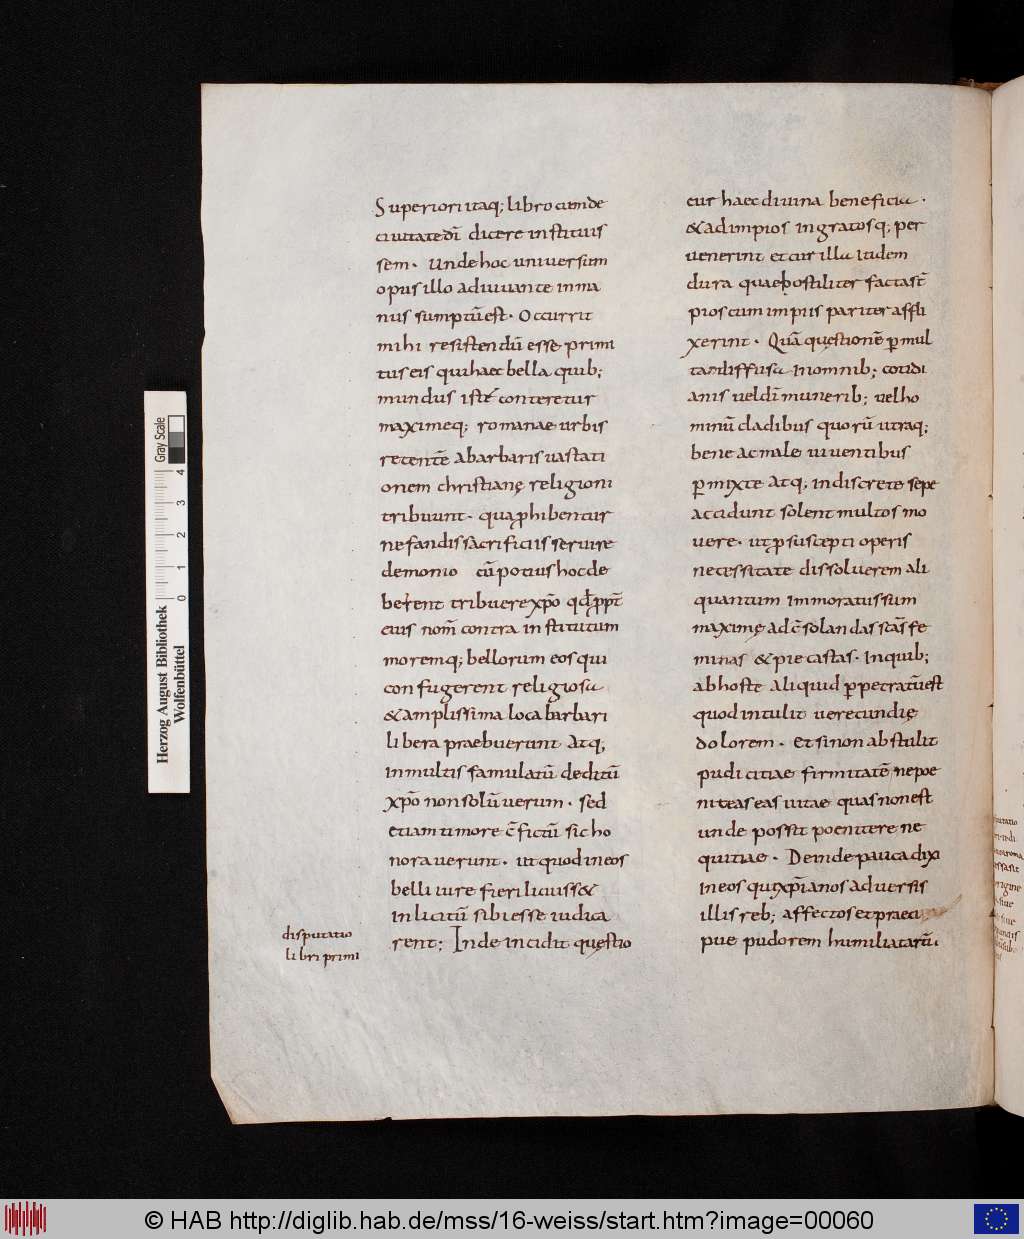 Superiori itaq; libro cum de
ciuitate dī dicere instituis
sem. Unde hoc uniuersum
opus illo adiuuante in ma
nus sumptū est. Occurrit
mihi resistendū esse primi
tus eis qui haec bella quib;
mundus iste conteretur
maximeq; romanae urbis
recentē a barbaris uastati
onem christianę religioni
tribuunt. qua ꝓhibentur
nefandis sacrificiis seruire
demonio cū potius hoc de
berent tribuere xp̄o
eius nom̄ contra institutum
moremq; bellorum eos qui
confugerent religiosa
& amplissima loca barbari
libera praebuerunt Atq;
in multis famulatū deditū
xp̄o non solū uerum. sed
etiam timore c̄fictū sic ho
norauerunt. ut quod in eos
belli iure fieri licuiss&
inlicitū sibi esse iudica
rent; Inde incidit quęstio
disputatio
libri primi
cur haec diuina beneficia.
& ad impios ingratosq; per
uenerint et cur illa itidem
dura quae hostiliter facta st̄
pios cum impiis pariter affli
xerint. Quā quęstionē ꝑ mul
ta diffusa In omnib; cotidi
anis uel dī munerib; uel ho
minū cladibus quorū utraq;
bene ac male uiuentibus
ꝑmixte Atq; indiscrete sepe
accidunt solent multos mo
uere. ut ꝓ suscepti operis
necessitate dissoluerem ali
quantum immoratus sum
maximę ad c̄solandas scās fe
minas & pie castas. In quib;
ab hoste aliquid ꝑpetratū est
quod intulit uerecundię
dolorem. Et si non abstulit
pudicitiae firmitatē ne poe
niteas eas uitae quas non est
unde possit poenitere ne
quitiae. Deinde pauca dixi
In eos qui xp̄ianos aduersis
illis reb; affectos et praeci
pue pudorem humiliatarū
Gray Scale
0 1 2 3 4
Herzog August Bibliothek
Wolfenbüttel
© HAB http://diglib.hab.de/mss/16-weiss/start.htm?image=00060